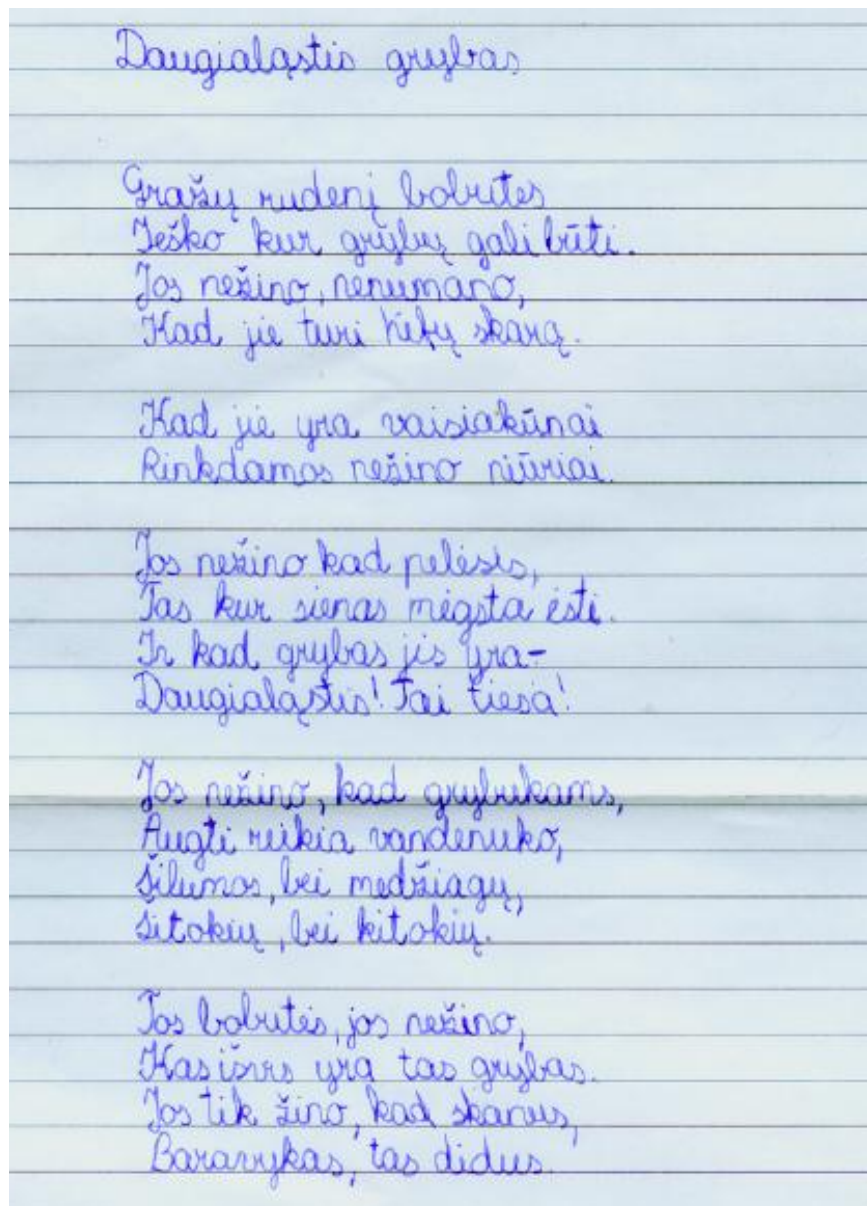 Daugialąstis grybas
Gražų rudenį bobutės
Ieško kur grybų gali būti.
Jos nežino, nenumano,
Kad jie turi hifų skarą.
Kad jie yra vaisiakūnai
Rinkdamos nežino niūriai.
Jos nežino kad pelėsis,
Tas kur sienas mėgsta ėsti.
Ir kad grybas jis yra-
Daugialąstis! Tai tiesa!
Jos nežino, kad grybukams,
Augti reikia vandenuko,
Šilumos, bei medžiagų,
Šitokių, bei kitokių.
Tos bobutės, jos nežino,
Kas išvis yra tas grybas.
Jos tik žino, kad skanus,
Baravykas, tas didus.